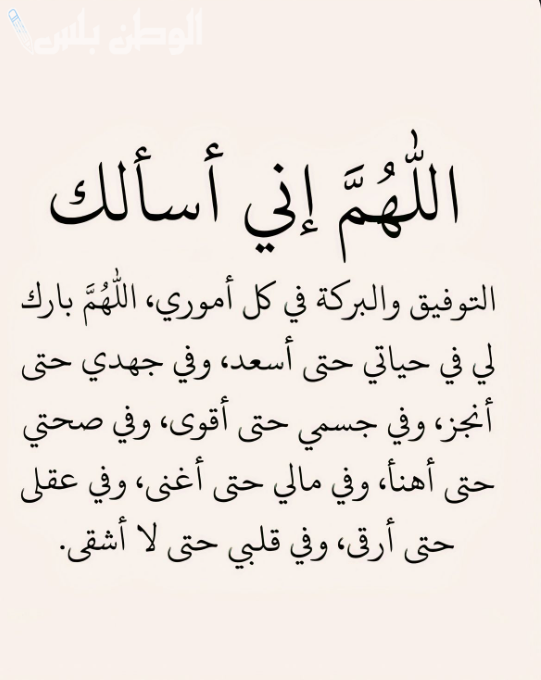 الوطن بلس
اللّٰهُمَّ إني أسألك
التوفيق والبركة في كل أموري، اللّٰهُمَّ بارك
لي في حياتي حتى أسعد، وفي جهدي حتى
أنجز، وفي جسمي حتى أقوى، وفي صحتي
حتى أهنأ، وفي مالي حتى أغنى، وفي عقلى
حتى أرقى، وفي قلبي حتى لا أشقى.